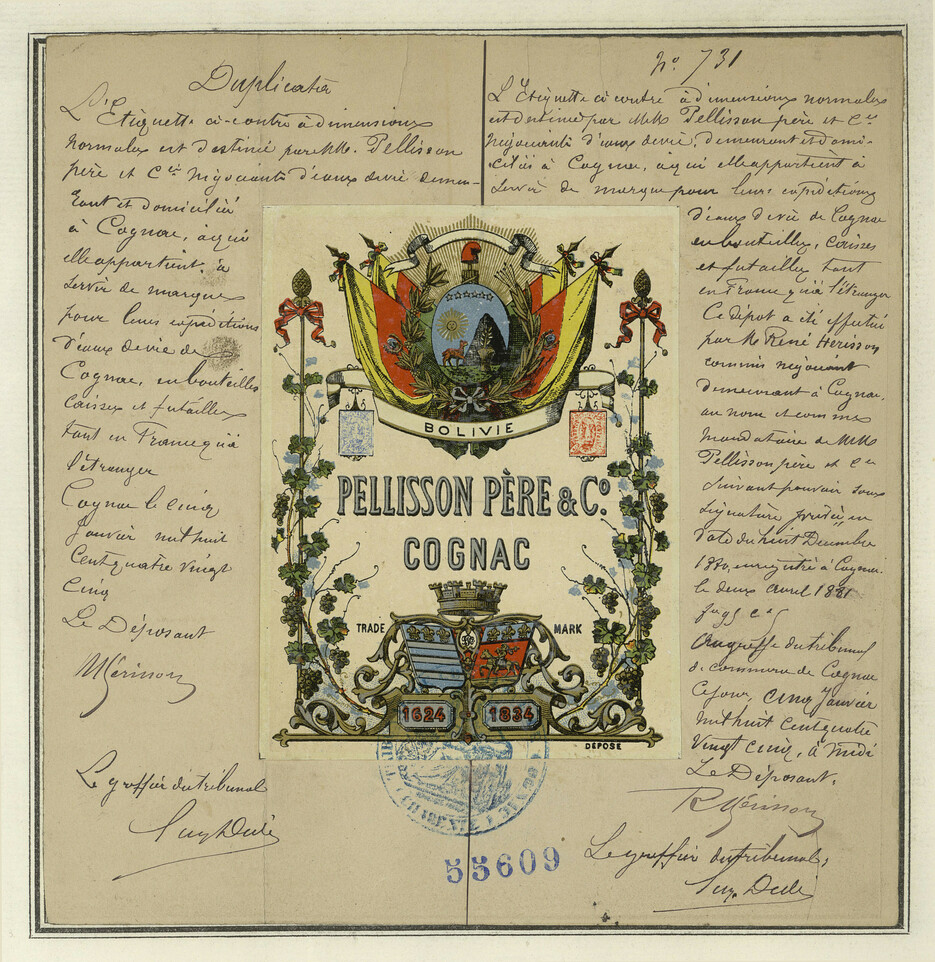 Duplicata
L'Etiquette ci-contre à dimensions
normales est destinée par MM. Pellisson
père et Cie Négociants d'eaux de vie demeu-
rant et domicilié
à Cognac, à qui
elle appartient, à
servir de marque
pour leurs expéditions
d'eaux de vie de
Cognac, en bouteilles
Caisses et futailles
tant en France qu'à
l'étranger
Cognac le Cinq
Janvier mil huit
Cent quatre vingt
Cinq
Le Déposant
Le greffier du tribunal
No 731
L'Etiquette ci contre à dimensions normales
est destinée par MM Pellisson père et Cie
Négociants d'eaux de vie, demeurant et domi-
ciliés à Cognac, à qui elle appartient à
servir de marque pour leurs expéditions
d'eaux de vie de Cognac
en bouteilles, caisses
et futailles tant
en France qu'à l'étranger
Ce dépôt a été effectué
par M René Herisson
commis négociant
demeurant à Cognac.
au nom et comme
Mandataire de MM
Pellisson père et Cie
suivant pouvoir sous
signature privée, en
date du huit Décembre
1880, enregistré à Cognac.
le deux avril 1881
Au greffe du tribunal
de commerce de Cognac
Ce jour, Cinq Janvier
mil huit Cent quatre
Vingt Cinq, à Midi
Le Déposant,
Le greffier du tribunal,
BOLIVIE
PELLISSON PÈRE & Co.
COGNAC
TRADE MARK
1624 1834
DÉPOSÉ
55609